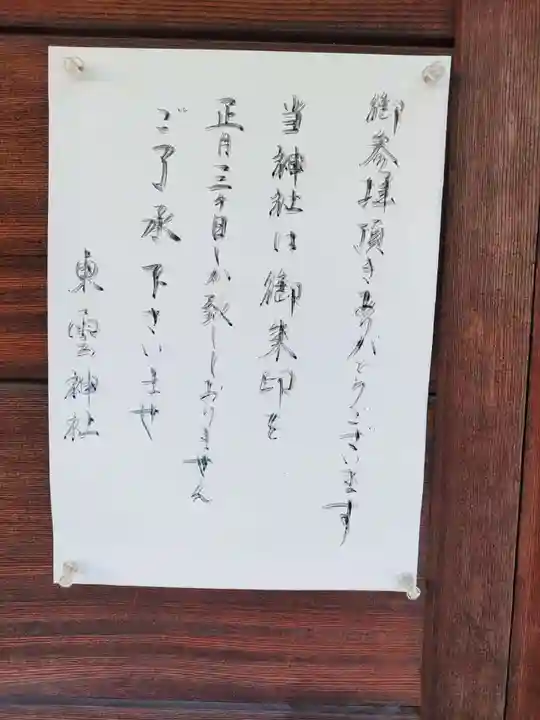 御参拝頂きありがとうございます
当神社は御朱印を
正月三ヶ日しか致しておりません
ご了承下さいませ
東雲神社